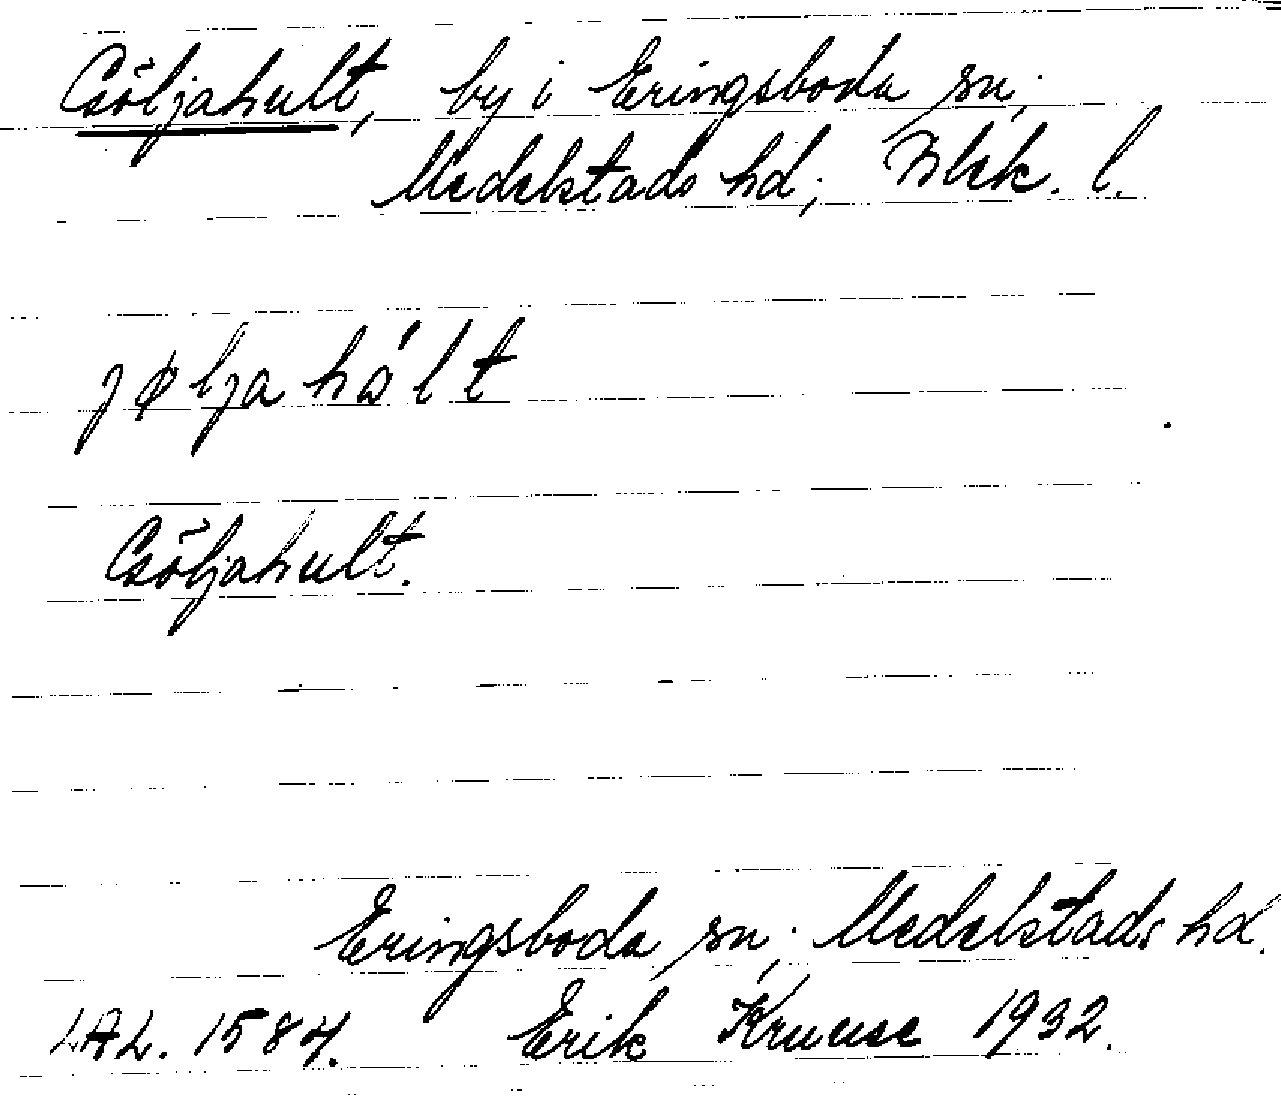 Gsöljahult, by i Eringsboda sn;
Medelstads hd; Blek. l.
jøljahál t
Gsöljahult.
Eringsboda sn; Medelstads hd.
LAL. 1584. Erik Kruuse 1932.